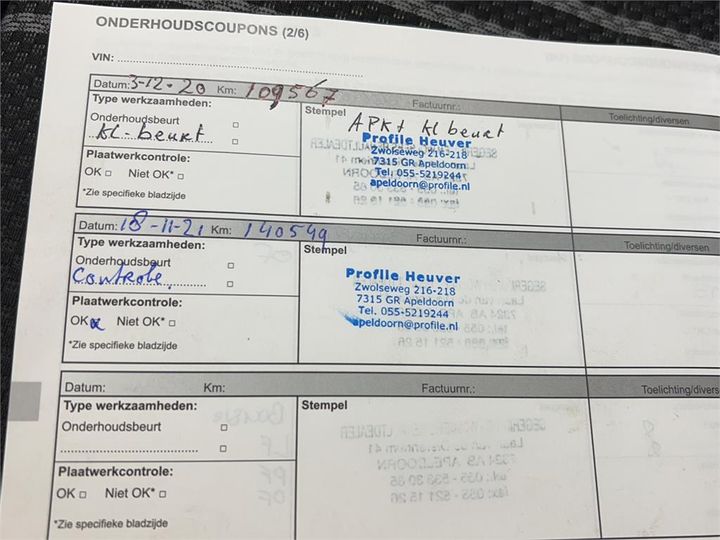 ONDERHOUDSCOUPONS (2/6)
VIN:
Datum: 3-12-20 Km: 109567 Factuurnr.: Toelichting/diversen
Type werkzaamheden:
Onderhoudsbeurt
Kl-beurt
Plaatwerkcontrole:
OK Niet OK*
*Zie specifieke bladzijde
Stempel
APK+ Kl beurt
Profile Heuver
Zwolseweg 216-218
7315 GR Apeldoorn
Tel. 055-5219244
apeldoorn@profile.nl
Datum: 18-11-21 Km: 140549 Factuurnr.: Toelichting/diversen
Type werkzaamheden:
Onderhoudsbeurt
Controle
Plaatwerkcontrole:
OK x Niet OK*
*Zie specifieke bladzijde
Stempel
Profile Heuver
Zwolseweg 216-218
7315 GR Apeldoorn
Tel. 055-5219244
apeldoorn@profile.nl
Datum: Km: Factuurnr.: Toelichting/divers
Type werkzaamheden:
Onderhoudsbeurt
Plaatwerkcontrole:
OK Niet OK*
*Zie specifieke bladzijde
Stempel